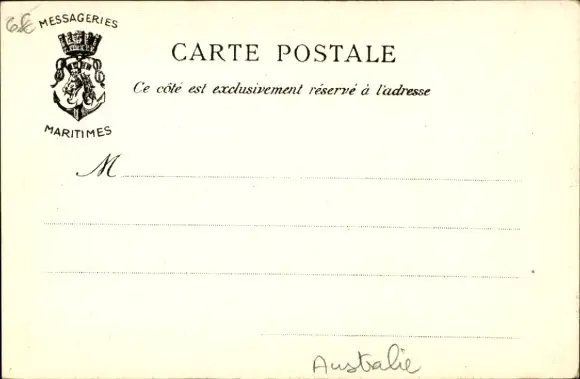 6€
MESSAGERIES
MARITIMES
CARTE POSTALE
Ce côté est exclusivement réservé à l'adresse
M
Australie